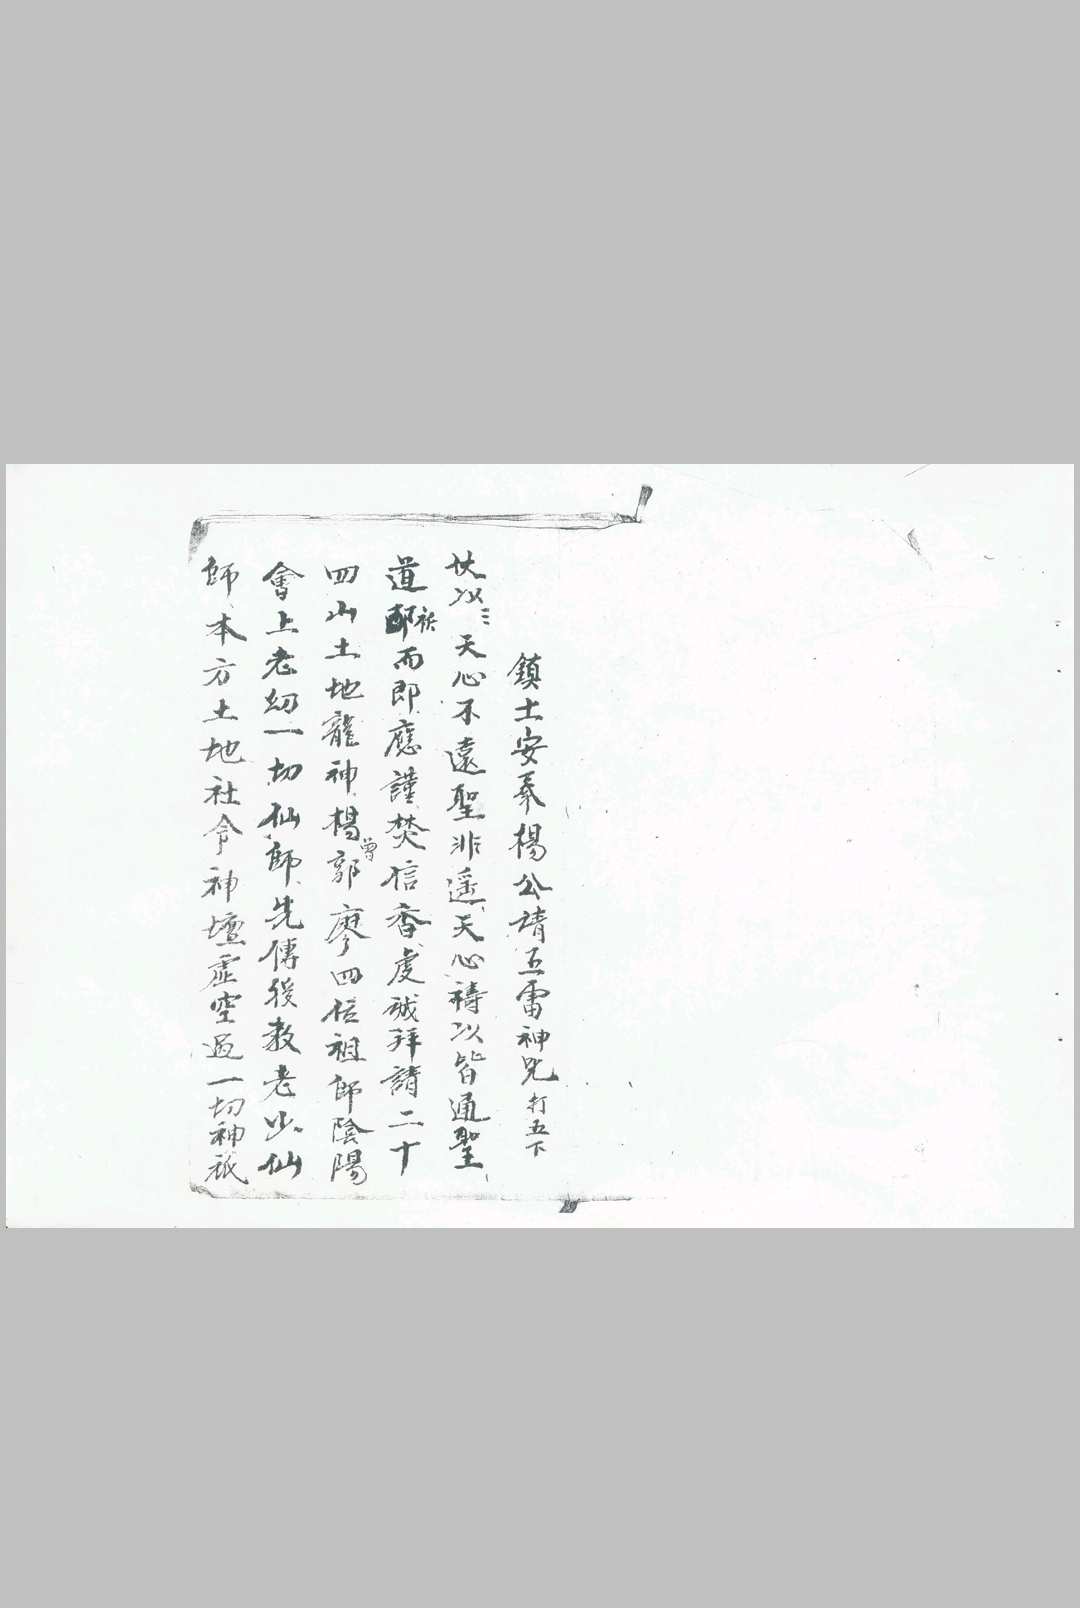 鎮土安奉楊公請五雷神咒打五下
伏以ミ天心不遠聖非遥天心禱以皆通聖
道祈而即應謹焚信香虔诚拜請二十
四山土地龍神楊曾郭廖四位祖師陰陽
會上老幼一切仙師先傳後教老少仙
師本方土地社令神壇虛空過一切神祇